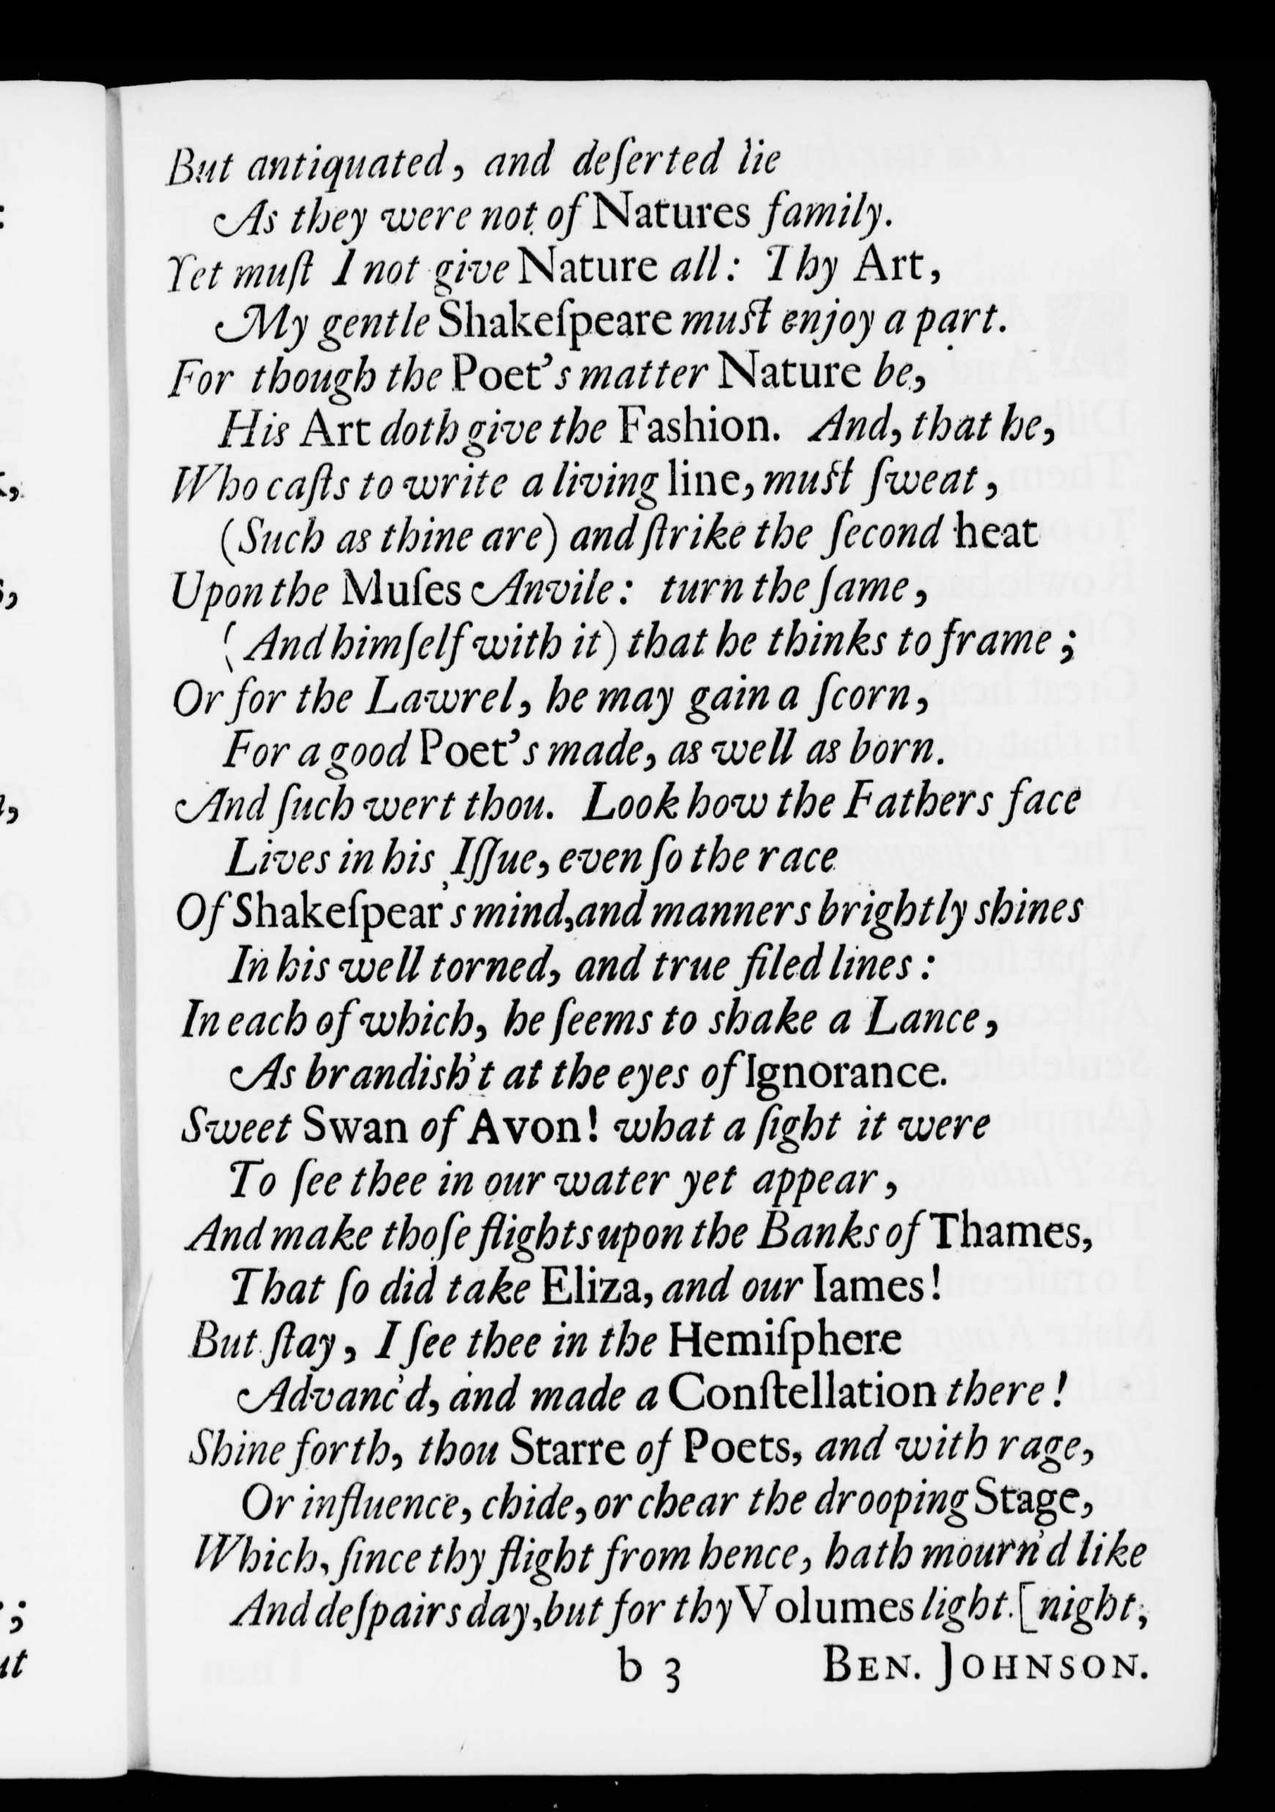 But antiquated, and deſerted lie
As they were not of Natures family.
Yet muſt I not give Nature all: Thy Art,
My gentle Shakeſpeare muſt enjoy a part.
For though the Poet's matter Nature be,
His Art doth give the Fashion. And, that he,
Who caſts to write a living line, muſt ſweat,
(Such as thine are) and ſtrike the ſecond heat
Upon the Muſes Anvile: turn the ſame,
(And himſelf with it) that he thinks to frame;
Or for the Lawrel, he may gain a ſcorn,
For a good Poet's made, as well as born.
And ſuch wert thou. Look how the Fathers face
Lives in his Iſſue, even ſo the race
Of Shakeſpear's mind, and manners brightly shines
In his well torned, and true filed lines:
In each of which, he ſeems to shake a Lance,
As brandish't at the eyes of Ignorance.
Sweet Swan of Avon! what a ſight it were
To ſee thee in our water yet appear,
And make thoſe flights upon the Banks of Thames,
That ſo did take Eliza, and our Iames!
But ſtay, I ſee thee in the Hemiſphere
Advanc'd, and made a Conſtellation there!
Shine forth, thou Starre of Poets, and with rage,
Or influence, chide, or chear the drooping Stage,
Which, ſince thy flight from hence, hath mourn'd like
And deſpairs day, but for thy Volumes light. [night,
b 3 BEN. JOHNSON.